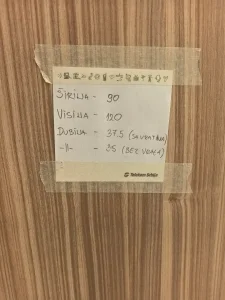 ŠIRINA - 90
VISINA - 120
DUBINA - 37.5 (SA VRATIMA)
-||- - 35 (BEZ VRATA)
Telekom Srbija